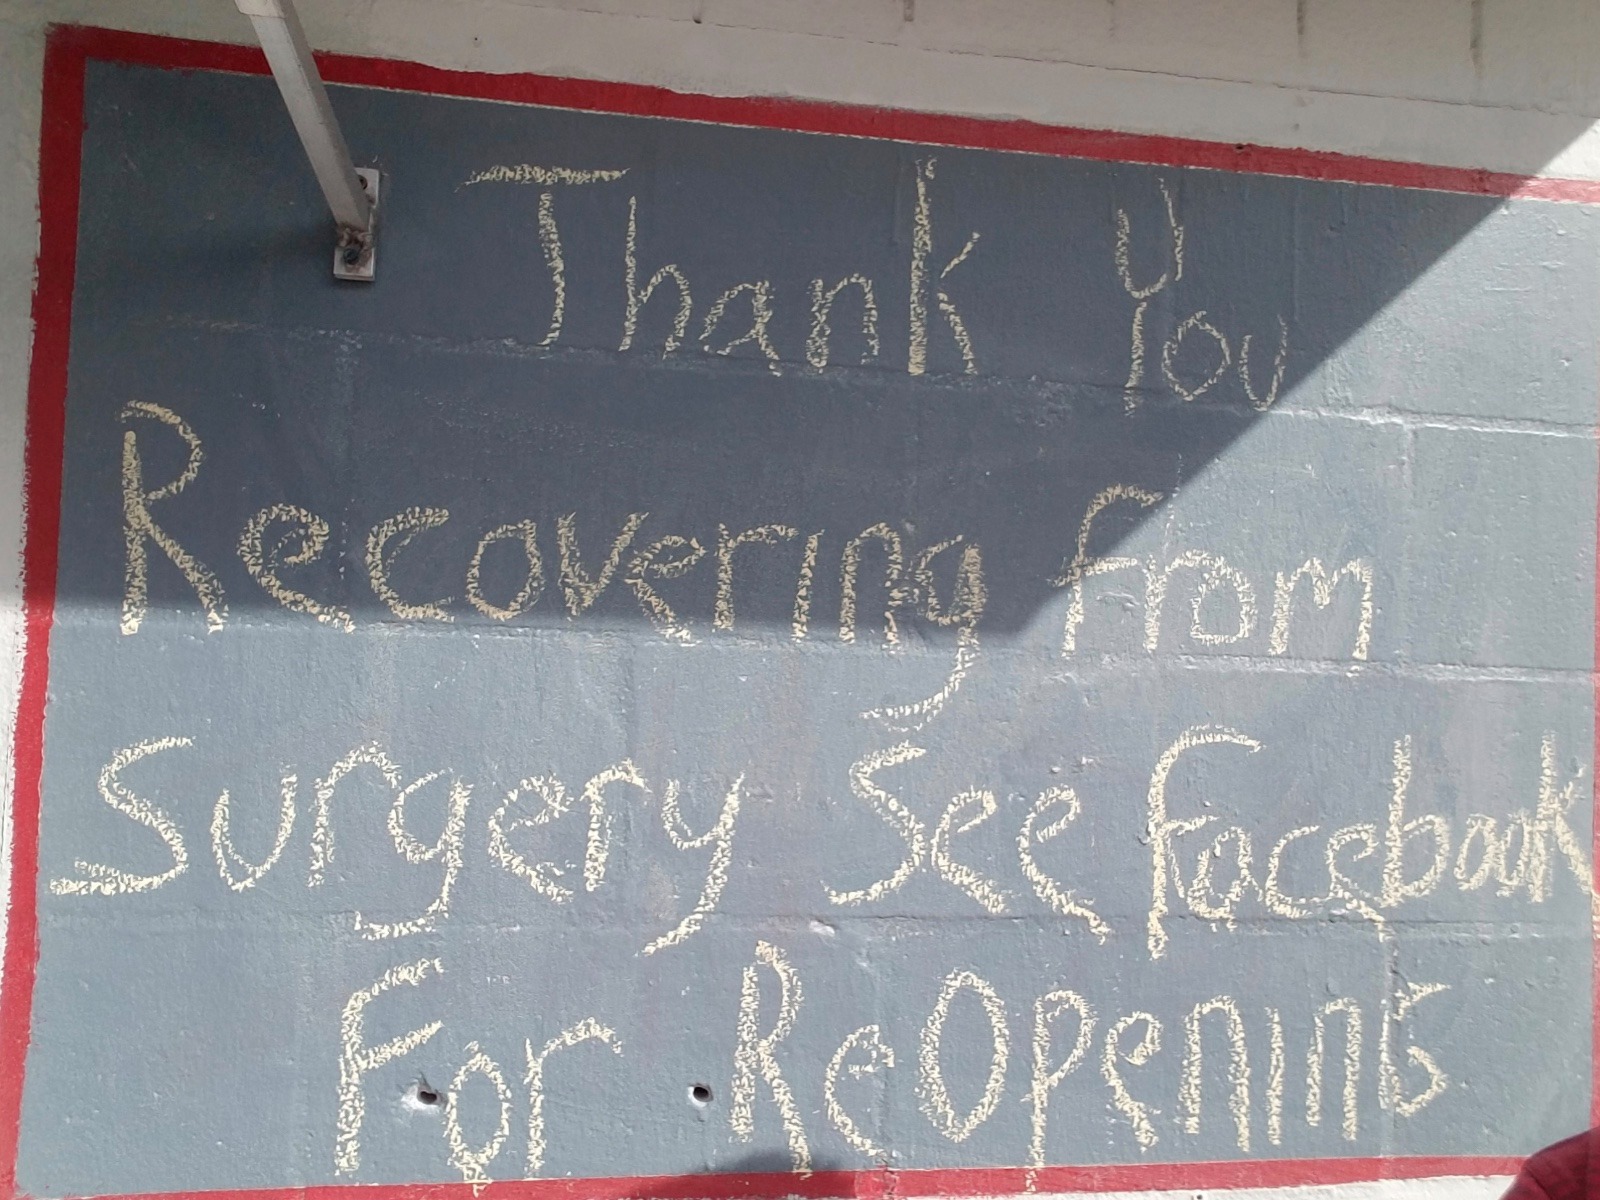 Thank You
Recovering from
Surgery See facebook
For ReOpening